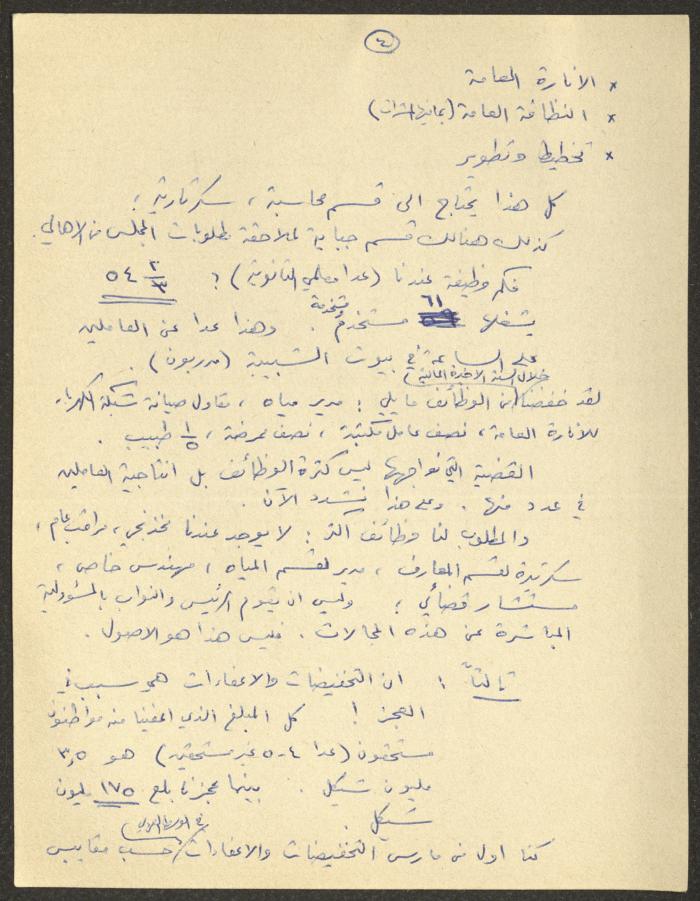 ٤
* الانارة العامة
* النظافة العامة (بما فيها الحشرات)
* تخطيط وتطوير
كل هذا يحتاج الى قسم محاسبة ، سكرتارية ؛
كذلك هنالك قسم جباية لملاحقة مطلوبات المجلس من الاهالي.
فكم وظيفة عندنا (عدا معلمي الثانوية) ؟ ٥٤ ٢/٣
يشغلها ٦١ مستخدمً مستخدمة . وهذا عدا عن العاملين
على الساعة في بيوت الشبيبة (مدربون) .
لقد خفضنا خلال السنة الاخيرة الحالية من الوظائف ما يلي : مدير مياه ، مقاول صيانة شبكة الكهرباء
للانارة العامة ، نصف عامل مكتبة ، نصف ممرضة ، ١/٥ طبيب .
القضية التي نواجهها ليس كثرة الوظائف بل انتاجية العاملين
في عدد منها . وعلى هذا نشدد الآن .
والمطلوب لنا وظائف اكثر : لا يوجد عندنا مراقب عام ،
سكرتيرة لقسم المعارف ، مدير لقسم المياه ، مهندس خاص ،
مستشار قضائي ؛ وليس ان يقوم الرئيس والنواب بالمسؤولية
المباشرة عن هذه المجالات . فليس هذا هو الاصول .
ثالثاً : ان التخفيضات والاعفاءات هي سبب في
العجز ! كل المبلغ الذي اعفينا منه مواطنون
مستحقون (عدا ٤-٥ غير مستحقين) هو ٣,٥
مليون شيكل . بينما عجزنا بلغ ١٧٥ مليون
شيكل .
كنا اول من مارس التخفيضات والاعفاءات في الوسط العربي حسب مقاييس